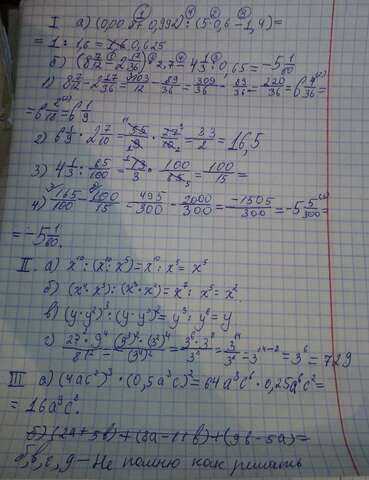 I. а) (0,008+0,992) : (5·0,6-1,4)=
= 1 : 1,6 = 0,625
б) (8 7/12 - 2 17/36)·2,7 - 4 1/3 : 0,65 = -5 1/60
1) 8 7/12 - 2 17/36 = 103/12 - 89/36 = 309/36 - 89/36 = 220/36 = 6 4/36 =
= 6 2/18 = 6 1/9
2) 6 1/9 · 2 7/10 = 55/9 · 27/10 = 33/2 = 16,5
3) 4 1/3 : 65/100 = 13/3 · 100/65 = 100/15 =
4) 165/100 - 100/15 = 495/300 - 2000/300 = -1505/300 = -5 5/300
= -5 1/60.
II. а) x¹⁰ : (x¹⁰ : x⁵) = x¹⁰ : x⁵ = x⁵
в) (y·y²)³ : (y·y²)² = y³ : y⁶ = y
с) 27²·9⁴/81² = (3³)²·(3²)⁴/(3⁴)² = 3⁶·3⁸/3⁸ = 3¹⁴/3⁸ = 3¹⁴⁻⁸ = 3⁶ = 729
III а) (4ac²)³·(0,5a³c)² = 64a³c⁶·0,25a⁶c² =
= 16a⁹c⁸.
б) (2a+5b)+(8a-11b)+(9b-5a)=
- Не помню как решать